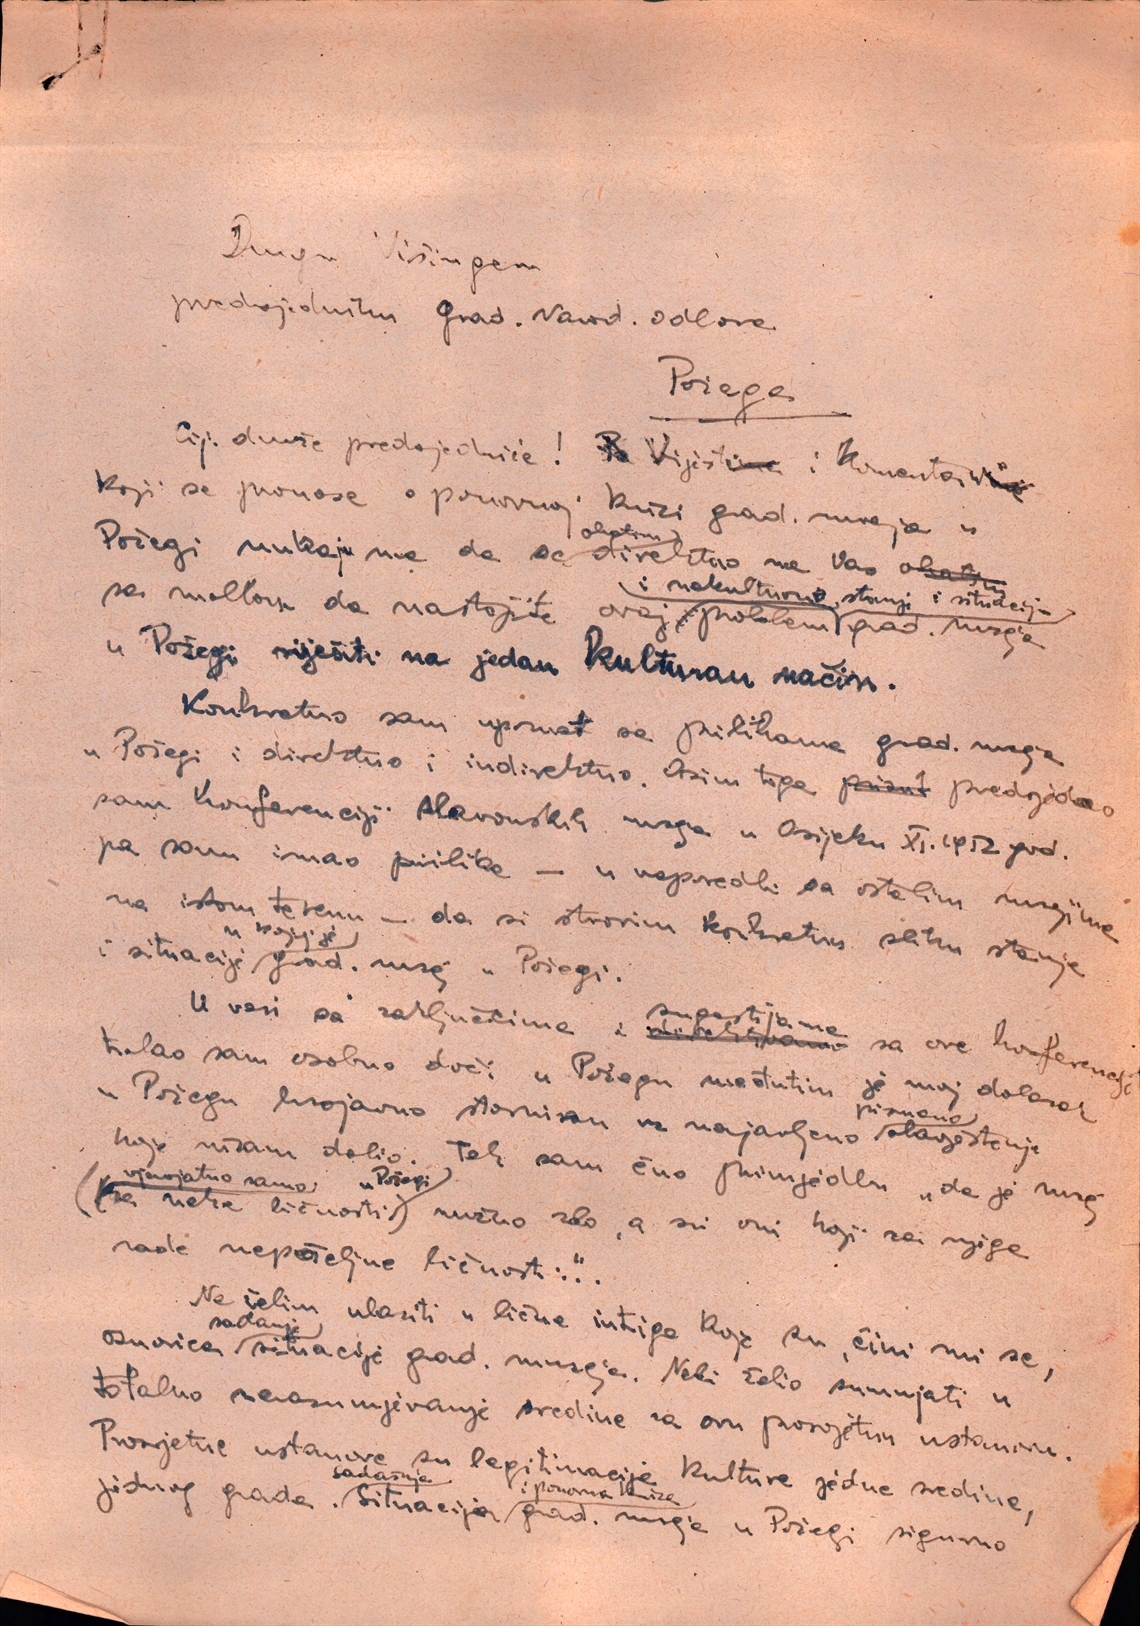 Drugu Višingeru
predsjedniku Grad. Narod. odbora
Požega
Cij. druže predsjedniče! Vijesti i komentari
koji se pronose o ponovnoj krizi grad. muzeja u
obratim
Požegi nukaju me da se direktno na Vas obratim
i nekulturno stanje i situaciju
sa molbom da nastojite ovaj problem grad. muzeja
u Požegi riješiti na jedan kulturan način.
Konkretno sam upoznat sa prilikama grad. muzeja
u Požegi i direktno i indirektno. Osim toga predsjedao
sam konferenciji slavonskih muzeja u Osijeku XI. 1952 god.
pa sam imao prilike — u usporedbi sa ostalim muzejima
na istom terenu — da si stvorim konkretnu sliku stanja
u kojoj je
i situacije grad. muzej u Požegi.
sugestijama
U vezi sa zaključcima i sa ove konferencije
trebao sam osobno doći u Požegu međutim je moj dolazak
pismeno
u Požegu brzojavno storniran uz najavljeno obavještenje
koje nisam dobio. Tek sam čuo primjedbu „da je muzej
vjerojatno samo u Požegi
(za neke ličnosti) nužno zlo, a svi oni koji za njega
rade nepoželjne ličnosti".
Ne želim ulaziti u lične intrige koje su, čini mi se,
sadanje
osnovica situacije grad. muzeja. Nebi želio sumnjati u
totalno nerazumjevanje sredine za ovu prosvjetnu ustanovu.
Prosvjetne ustanove su legitimacije kulture jedne sredine,
sadašnja i ponovna kriza
jednog grada. Situacija grad. muzeja u Požegi sigurno